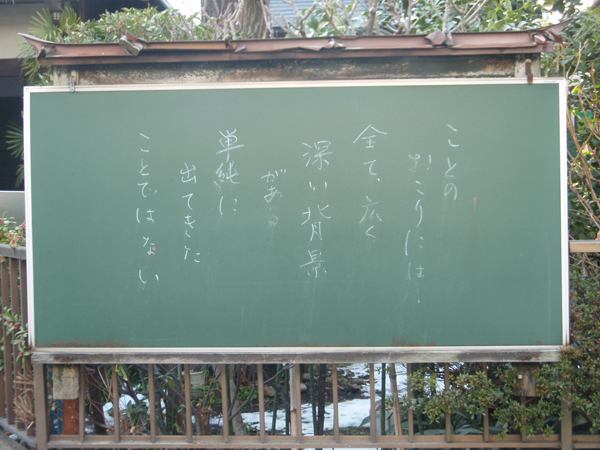 ことの
おこりには、
全て、広く
深い背景
がある
単純に
出てきた
ことではない